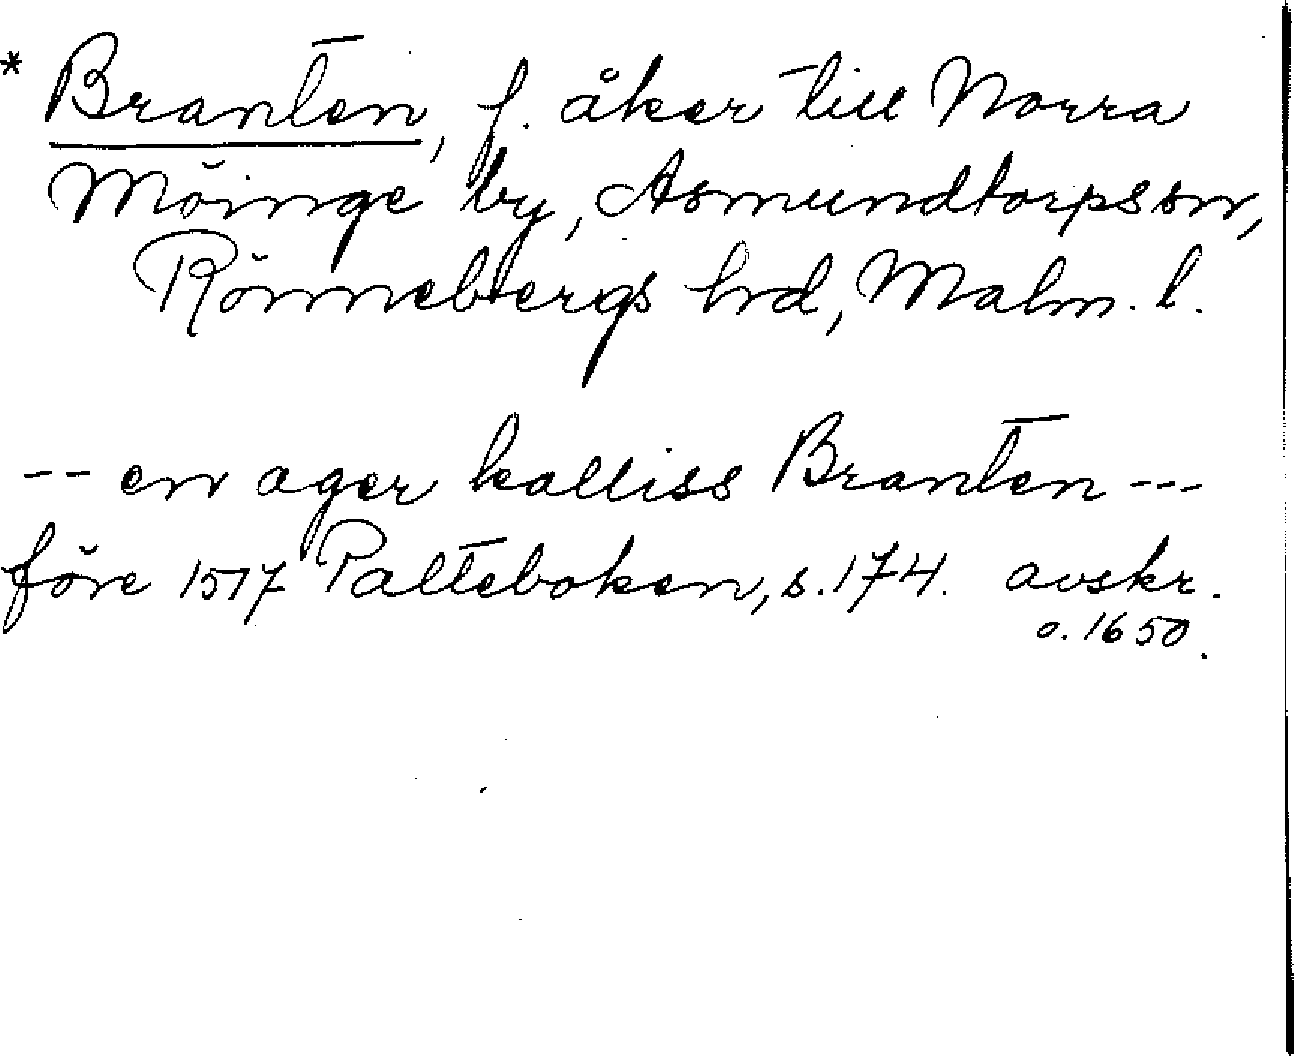 * Branten, f. åker till Norra
Möinge by, Asmundtorps sn,
Rönnebergs hd, Malm. l.
-- en ager kalliss Branten ---
före 1517 Palteboken, s. 174. avskr.
o. 1650.